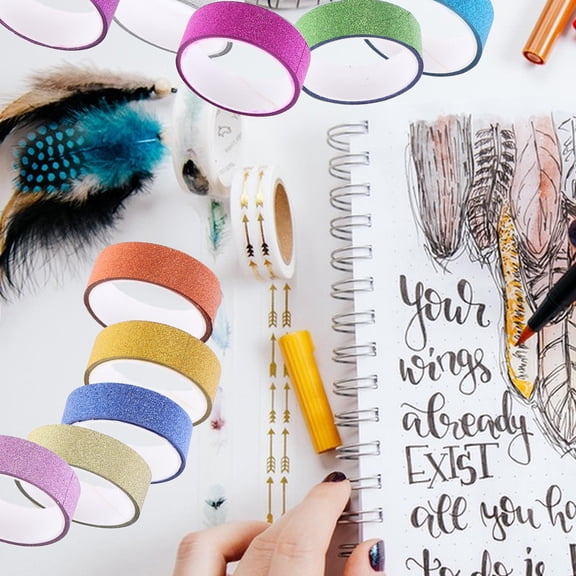 Your
wings
already
EXIST
all you ha
to do is